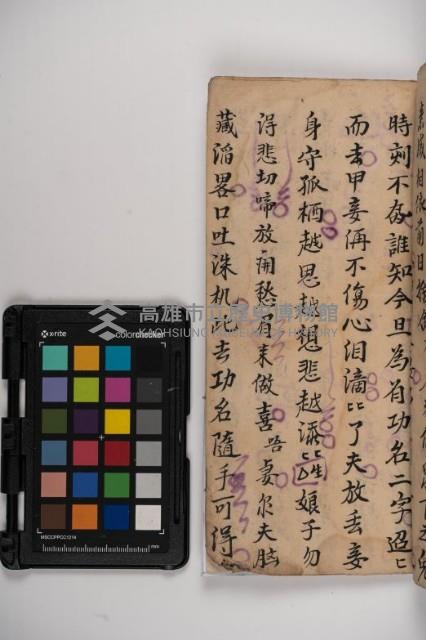 時刻不在誰知今旦為有功名二字迢〻
而去甲妾侢不傷心泪滴〻了夫放丢妾
身守孤栖越思越想悲越深〻生娘子勿
得悲切啼放開愁眉來做喜吾妻尔夫腦
藏滔畧口吐洙机此去功名隨手可得
高雄市立歷史博物館
KAOHSIUNG MUSEUM OF HISTORY
x-rite
colorchecker
MSCCPPCC1214
mm